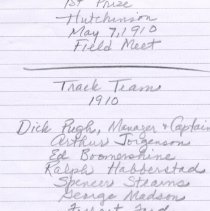 1st Prize
Hutchinson
May 7, 1910
Field Meet
Track Team
1910
Dick Pugh, Manager & Captain
Arthur Jorgenson
Ed Boomershine
Ralph Habberstad
Spencer Stearns
George Madson